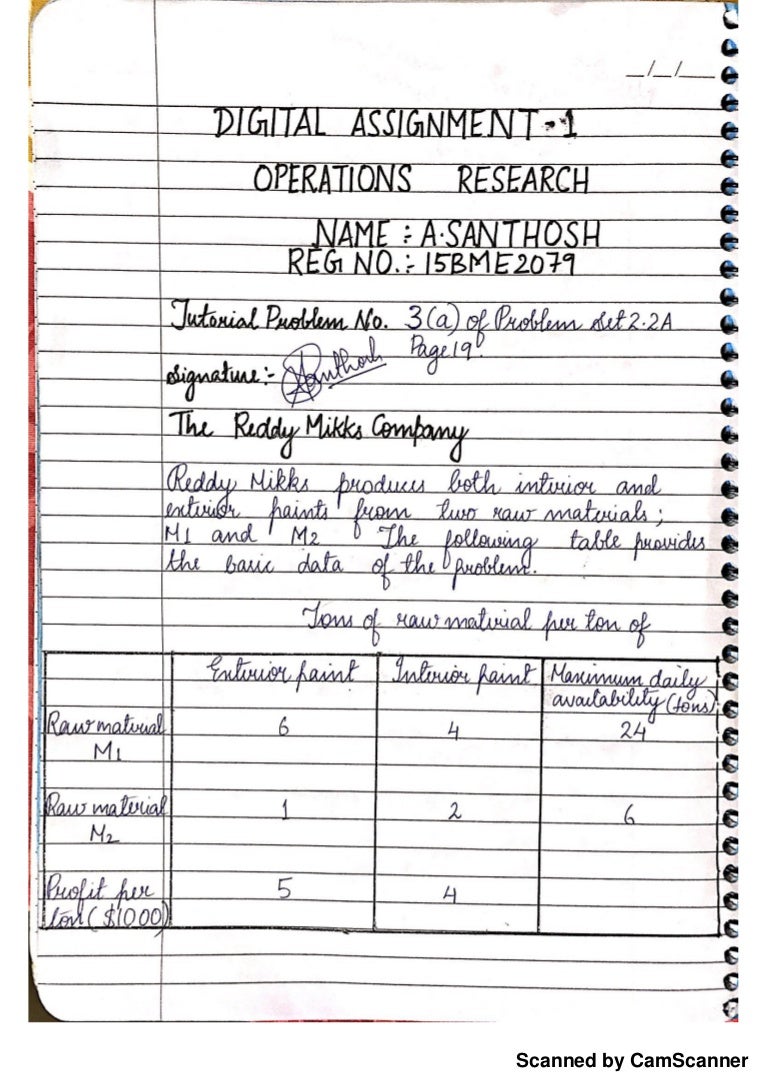 _/_/__
DIGITAL ASSIGNMENT-1
OPERATIONS RESEARCH
NAME : A.SANTHOSH
REG NO.:- 15BME2079
Tutorial Problem No. 3(a) of Problem Set 2.2A
Page 19.
Signature:- Santhosh
The Reddy Mikks Company
Reddy Mikks produces both interior and
exterior paints from two raw materials;
M1 and M2 The following table provides
the basic data of the problem.
Tons of raw material per ton of
Exterior paint Interior paint Maximum daily
availability (tons)
Raw material 6 4 24
M1
Raw material 1 2 6
M2
Profit per 5 4
ton ($1000)
Scanned by CamScanner